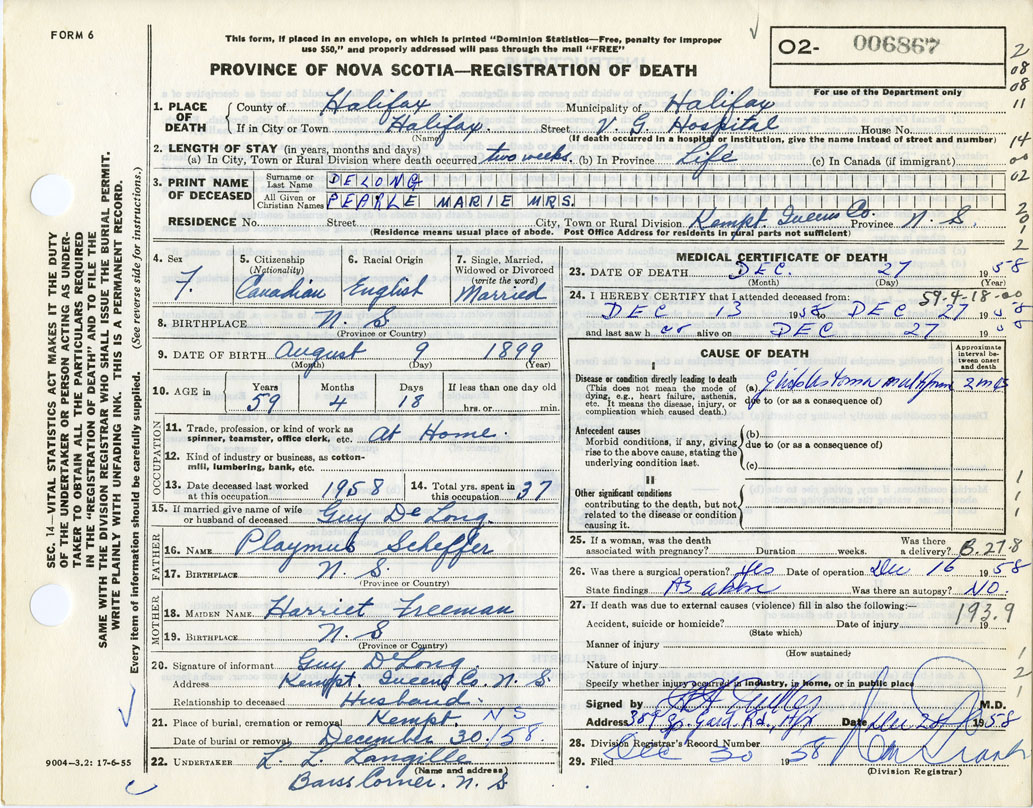 FORM 6
This form, if placed in an envelope, on which is printed "Dominion Statistics—Free, penalty for improper
use $50," and properly addressed will pass through the mail "FREE"
O2- 006867
For use of the Department only
PROVINCE OF NOVA SCOTIA—REGISTRATION OF DEATH
2
08
08
11
14
00
02
1. PLACE OF DEATH
County of Halifax Municipality of Halifax
If in City or Town Halifax. Street V. G. Hospital House No.
(Name) (If death occurred in a hospital or institution, give the name instead of street and number)
2. LENGTH OF STAY (in years, months and days)
(a) In City, Town or Rural Division where death occurred two weeks. (b) In Province Life (c) In Canada (if immigrant)
3. PRINT NAME OF DECEASED
Surname or Last Name DELONG
All Given or Christian Names PEARLE MARIE MRS.
RESIDENCE No. Street City, Town or Rural Division Kempt. Queens Co. Province N. S.
(Residence means usual place of abode. Post Office Address for residents in rural parts not sufficient)
4. Sex F.
5. Citizenship (Nationality) Canadian
6. Racial Origin English
7. Single, Married, Widowed or Divorced (write the word) Married
8. BIRTHPLACE N. S
(Province or Country)
9. DATE OF BIRTH August 9 1899
(Month) (Day) (Year)
10. AGE in Years 59 Months 4 Days 18 If less than one day old hrs. or min.
OCCUPATION
11. Trade, profession, or kind of work as spinner, teamster, office clerk, etc. At Home.
12. Kind of industry or business, as cotton-mill, lumbering, bank, etc.
13. Date deceased last worked at this occupation 1958
14. Total yrs. spent in this occupation 37
15. If married give name of wife or husband of deceased Guy DeLong.
FATHER
16. NAME Scheffer
17. BIRTHPLACE N. S
(Province or Country)
MOTHER
18. MAIDEN NAME Harriet Freeman
19. BIRTHPLACE N. S
(Province or Country)
20. Signature of informant Guy DeLong.
Address Kempt. Queens Co. N. S.
Relationship to deceased Husband.
21. Place of burial, cremation or removal Kempt. N S
Date of burial or removal December 30/58
22. UNDERTAKER L. L. Langille
(Name and address)
Barss Corner. N. S
MEDICAL CERTIFICATE OF DEATH
23. DATE OF DEATH DEC. 27 1958
(Month) (Day) (Year)
59-4-18-00
24. I HEREBY CERTIFY that I attended deceased from:
DEC 13 1958 to DEC 27 1958
and last saw her alive on DEC 27 1958
CAUSE OF DEATH
Approximate interval between onset and death
I
Disease or condition directly leading to death
(This does not mean the mode of dying, e.g., heart failure, asthenia, etc. It means the disease, injury, or complication which caused death.)
(a) 2 mos
due to (or as a consequence of)
Antecedent causes
Morbid conditions, if any, giving rise to the above cause, stating the underlying condition last.
(b)
due to (or as a consequence of)
(c)
II
Other significant conditions
contributing to the death, but not related to the disease or condition causing it.
25. If a woman, was the death associated with pregnancy? Duration weeks. Was there a delivery?
26. Was there a surgical operation? yes Date of operation Dec 16 1958
State findings As above Was there an autopsy? NO.
27. If death was due to external causes (violence) fill in also the following:—
193.9
Accident, suicide or homicide? Date of injury 19
(State which)
Manner of injury
(How sustained)
Nature of injury
Specify whether injury occurred in industry, in home, or in public place
Signed by M.D.
Address 389 Sp. Gard. Rd., Hfx Date Dec 28 1958
28. Division Registrar's Record Number
29. Filed Dec 30 1958
(Division Registrar)
SEC. 14—VITAL STATISTICS ACT MAKES IT THE DUTY
OF THE UNDERTAKER OR PERSON ACTING AS UNDER-
TAKER TO OBTAIN ALL THE PARTICULARS REQUIRED
IN THE "REGISTRATION OF DEATH" AND TO FILE THE
SAME WITH THE DIVISION REGISTRAR WHO SHALL ISSUE THE BURIAL PERMIT.
WRITE PLAINLY WITH UNFADING INK. THIS IS A PERMANENT RECORD.
Every item of information should be carefully supplied. (See reverse side for instructions.)
9004—3.2: 17-6-55